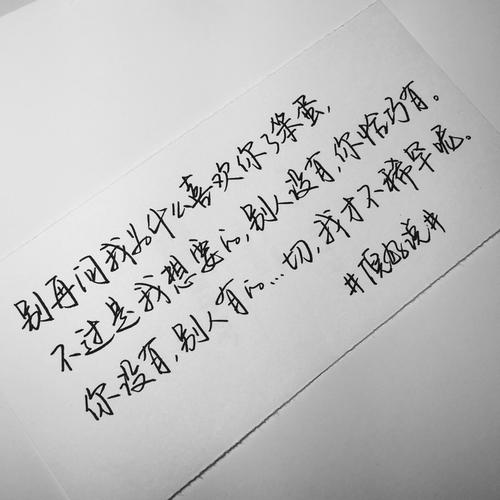 别再问我为什么喜欢你了笨蛋,
不过是我想要的,别人没有,你恰巧有。
你没有,别人有的...一切,我才不稀罕呢。
说#